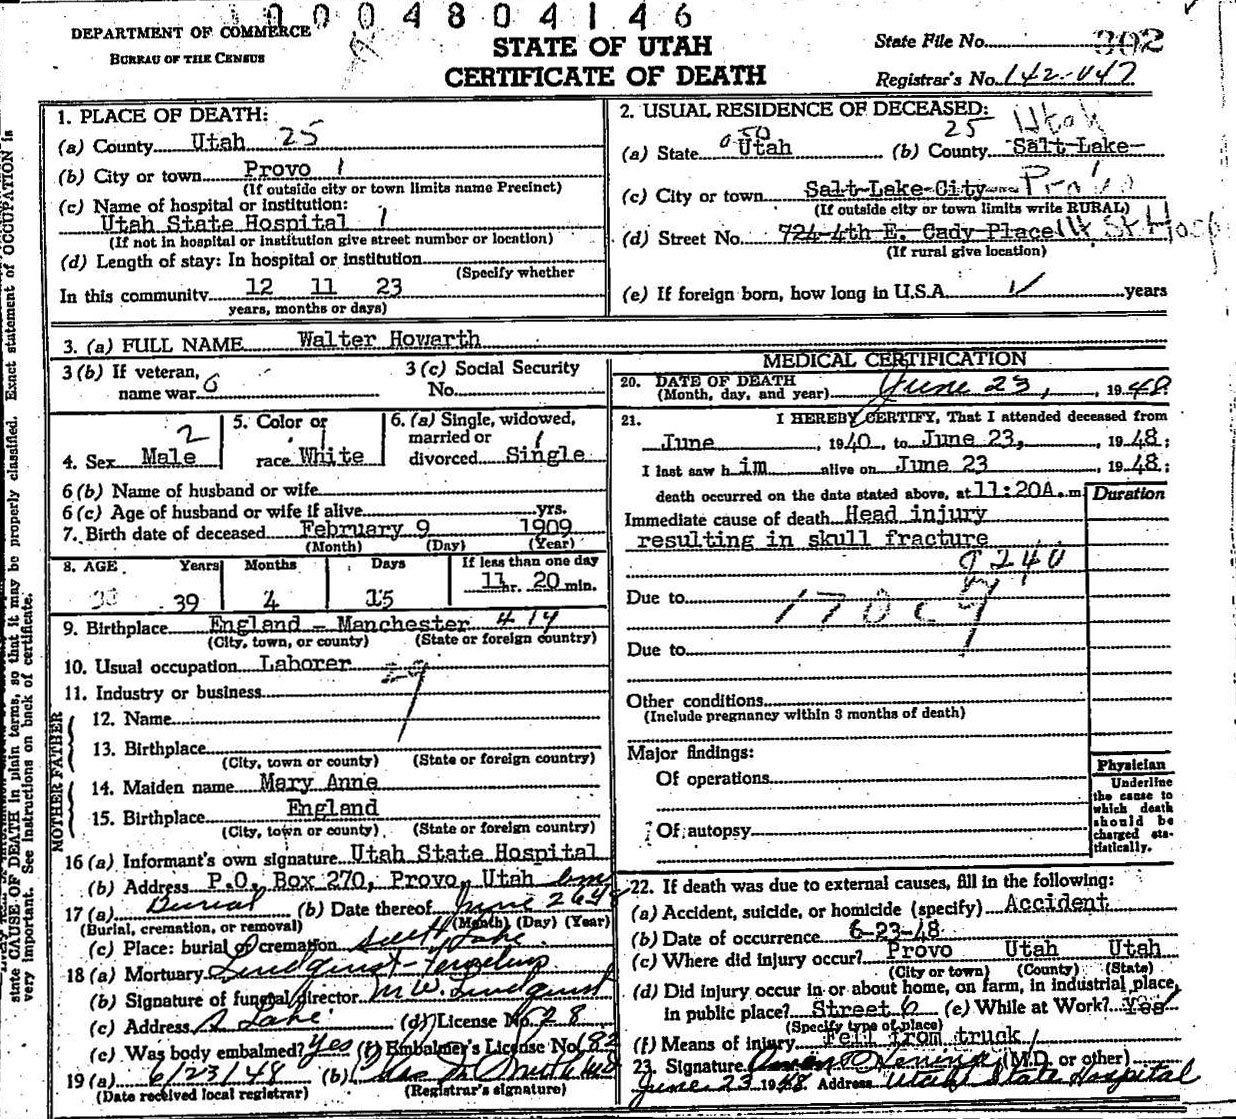 0004804146
DEPARTMENT OF COMMERCE
BUREAU OF THE CENSUS
STATE OF UTAH
CERTIFICATE OF DEATH
State File No. 302
Registrar's No. 142-047
state CAUSE OF DEATH in plain terms, so that it may be properly classified. Exact statement of OCCUPATION is
very important. See instructions on back of certificate.
1. PLACE OF DEATH:
(a) County Utah 25
(b) City or town Provo 1
(If outside city or town limits name Precinct)
(c) Name of hospital or institution:
Utah State Hospital 1
(If not in hospital or institution give street number or location)
(d) Length of stay: In hospital or institution
(Specify whether
In this community 12 11 23
years, months or days)
2. USUAL RESIDENCE OF DECEASED:
25 Utah
(a) State 050 Utah (b) County Salt Lake
(c) City or town Salt Lake City Provo
(If outside city or town limits write RURAL)
(d) Street No. 724-4th E. Cady Place Ut St Hosp
(If rural give location)
(e) If foreign born, how long in U.S.A. years
3. (a) FULL NAME Walter Howarth
3 (b) If veteran,
name war
3 (c) Social Security
No.
2
4. Sex Male
5. Color or
race White
6. (a) Single, widowed,
married or
divorced Single
6 (b) Name of husband or wife
6 (c) Age of husband or wife if alive yrs.
7. Birth date of deceased February 9 1909
(Month) (Day) (Year)
8. AGE Years Months Days If less than one day
39 4 15 11 hr. 20 min.
9. Birthplace England - Manchester 414
(City, town, or county) (State or foreign country)
10. Usual occupation Laborer
11. Industry or business
FATHER
12. Name
13. Birthplace
(City, town or county) (State or foreign country)
MOTHER
14. Maiden name Mary Anne
15. Birthplace England
(City, town or county) (State or foreign country)
16 (a) Informant's own signature Utah State Hospital
(b) Address P.O. Box 270, Provo, Utah
17 (a) Burial (b) Date thereof June 26 48
(Burial, cremation, or removal) (Month) (Day) (Year)
(c) Place: burial or cremation Salt Lake
18 (a) Mortuary Lindquist-
(b) Signature of funeral director M.W. Lindquist
(c) Address S Lake (d) License No. 28
(e) Was body embalmed? Yes (f) Embalmer's License No. 182
19 (a) 6/23/48 (b)
(Date received local registrar) (Registrar's signature)
MEDICAL CERTIFICATION
20. DATE OF DEATH
(Month, day, and year) June 23, 1948
21. I HEREBY CERTIFY, That I attended deceased from
June, 1940, to June 23, 1948;
I last saw him alive on June 23, 1948;
death occurred on the date stated above, at 11:20A.m.
Duration
Immediate cause of death Head injury
resulting in skull fracture
Due to 170c
Due to
Other conditions
(Include pregnancy within 3 months of death)
Major findings:
Of operations
Of autopsy
Physician
Underline
the cause to
which death
should be
charged sta-
tistically.
22. If death was due to external causes, fill in the following:
(a) Accident, suicide, or homicide (specify) Accident
(b) Date of occurrence 6-23-48
(c) Where did injury occur? Provo Utah Utah
(City or town) (County) (State)
(d) Did injury occur in or about home, on farm, in industrial place,
in public place? Street 6 (e) While at Work? Yes
(Specify type of place)
(f) Means of injury Fell from truck
23. Signature (M.D. or other)
June 23 1948 Address Utah State Hospital